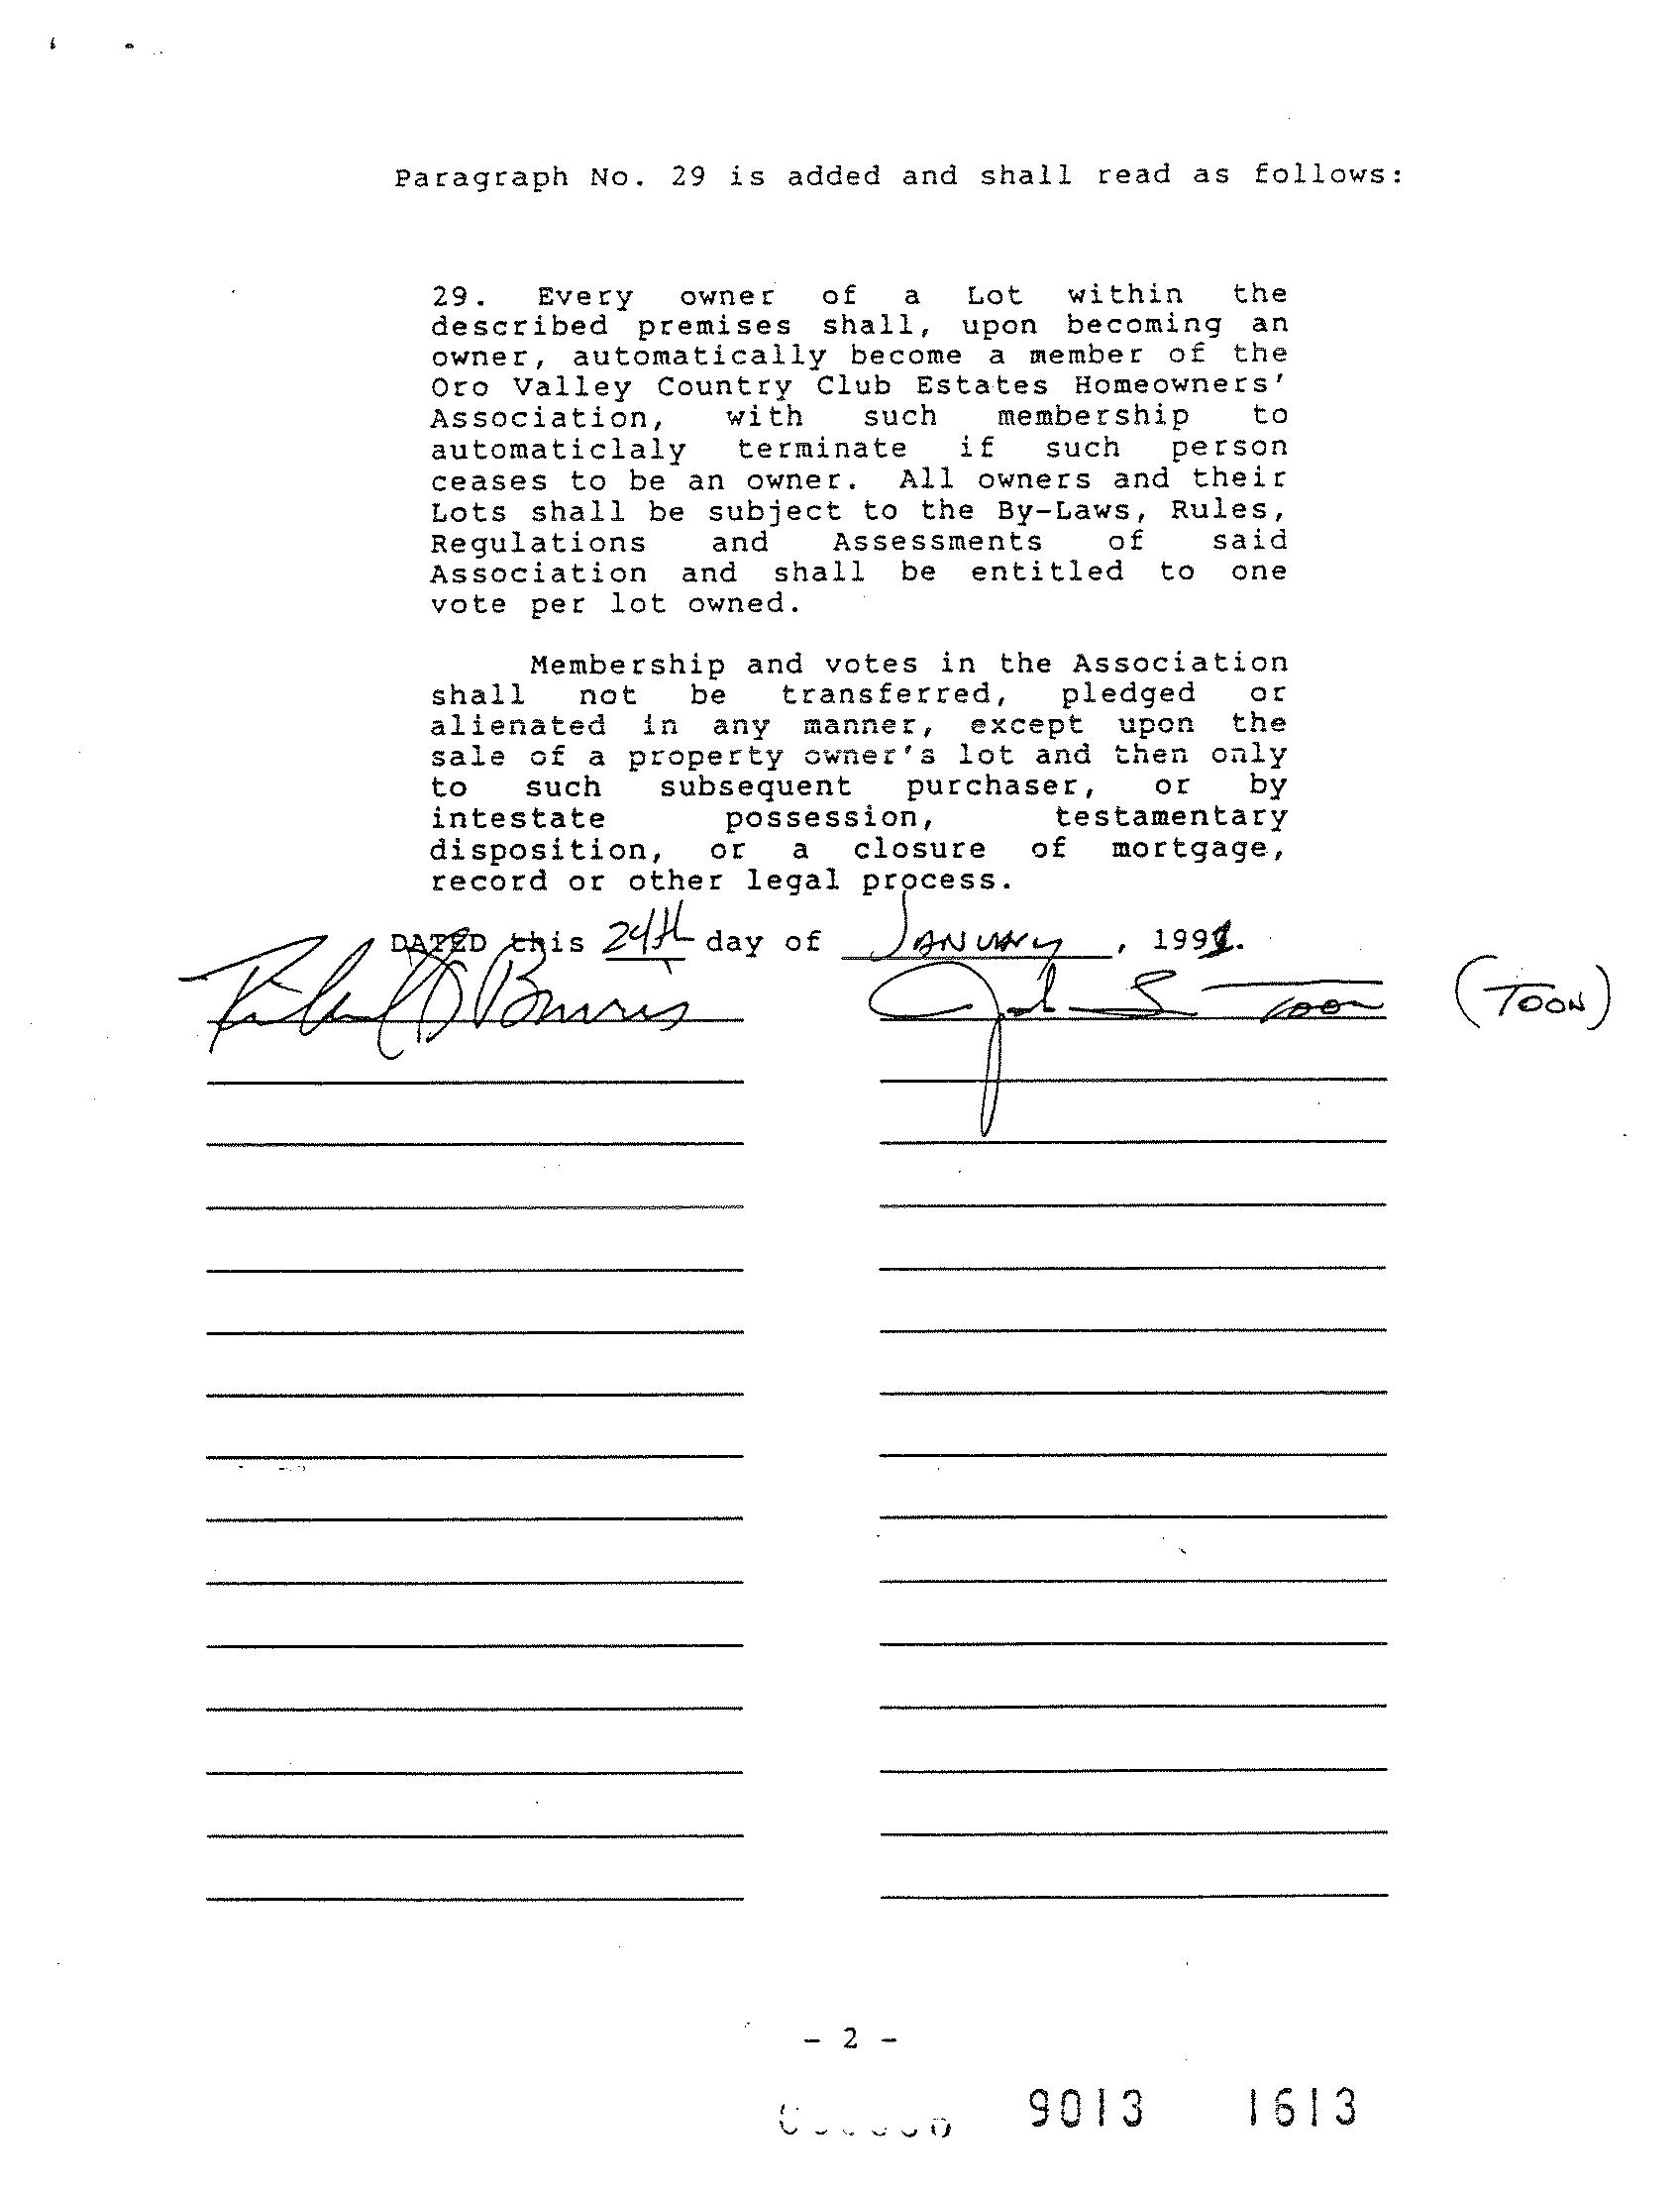 Paragraph No. 29 is added and shall read as follows:
29. Every owner of a Lot within the
described premises shall, upon becoming an
owner, automatically become a member of the
Oro Valley Country Club Estates Homeowners'
Association, with such membership to
automaticlaly terminate if such person
ceases to be an owner. All owners and their
Lots shall be subject to the By-Laws, Rules,
Regulations and Assessments of said
Association and shall be entitled to one
vote per lot owned.
Membership and votes in the Association
shall not be transferred, pledged or
alienated in any manner, except upon the
sale of a property owner's lot and then only
to such subsequent purchaser, or by
intestate possession, testamentary
disposition, or a closure of mortgage,
record or other legal process.
DATED this 24th day of JANUARY, 199
Toon (TOON)
- 2 -
9013 1613